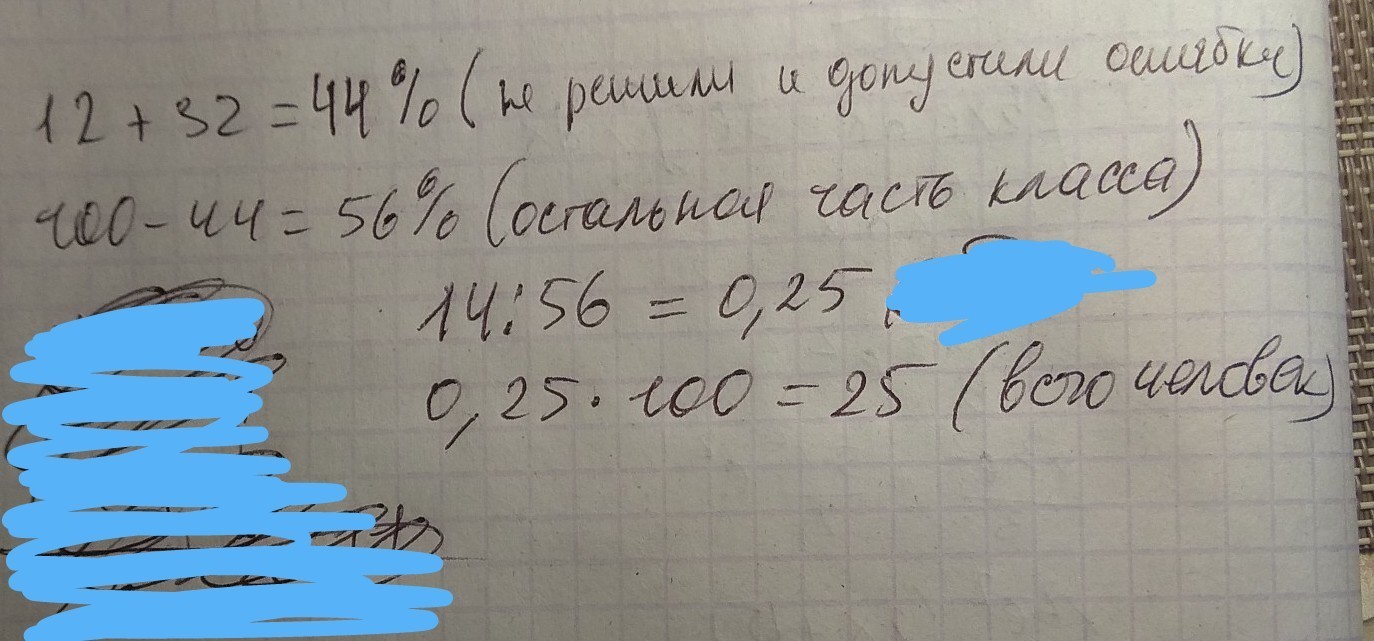 12 + 32 = 44% (не решили и допустили ошибку)
100 - 44 = 56% (остальная часть класса)
14 : 56 = 0,25
0,25 · 100 = 25 (всего человек)